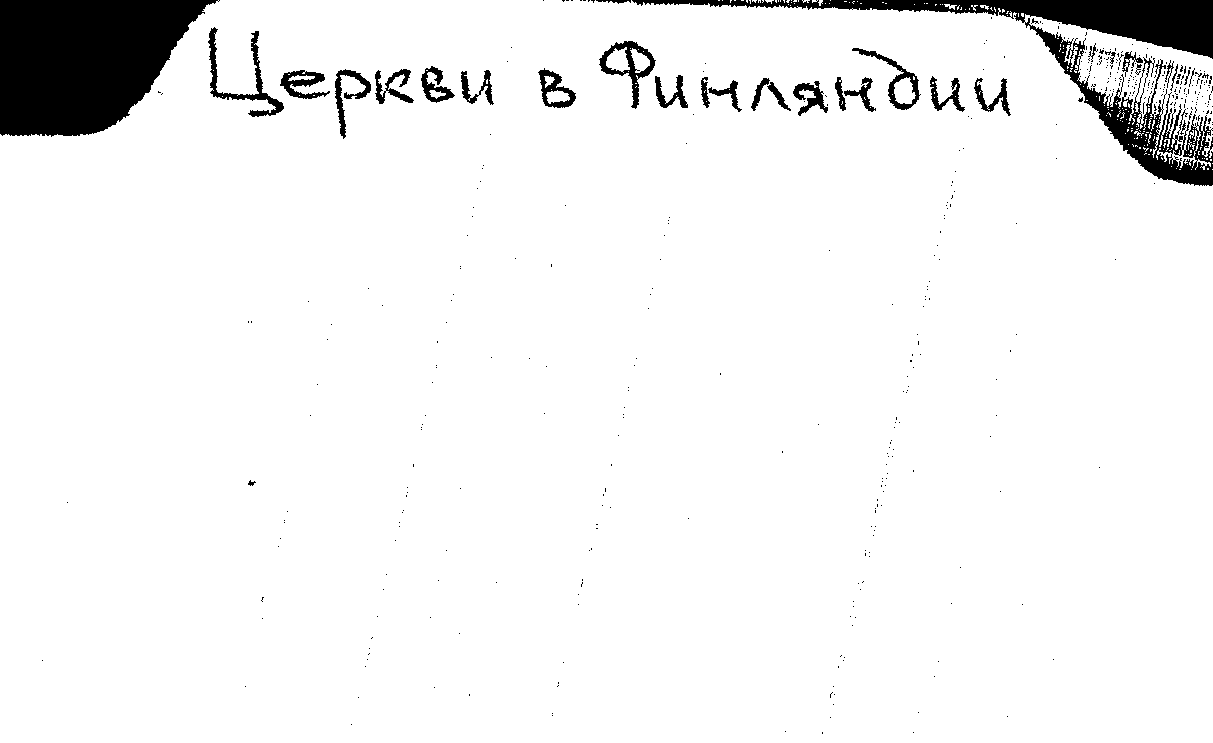 Церкви в Финляндии